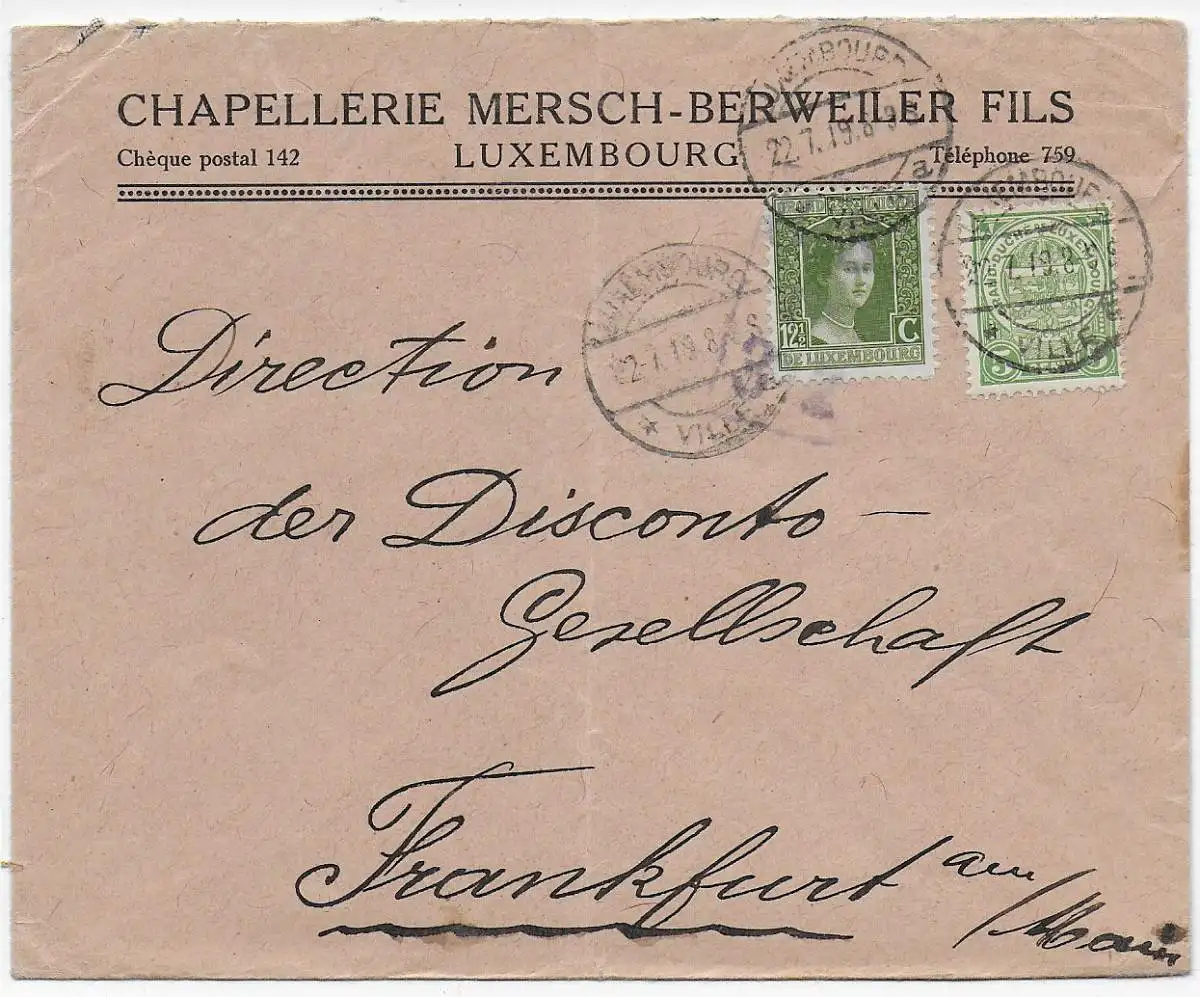 CHAPELLERIE MERSCH-BERWEILER FILS
Chèque postal 142 LUXEMBOURG Téléphone 759
LUXEMBOURG
22.7.19.8-9S
a
LUXEMBOURG
22.7.19.8
VILLE
LUXEMBOURG
7.19.8
VILLE
GRAND DUCHÉ
12½ C
DE LUXEMBOURG
GRAND DUCHÉ DE LUXEMBOURG
5 5
Direction
der Disconto-
Gesellschaft
Frankfurt am/Main